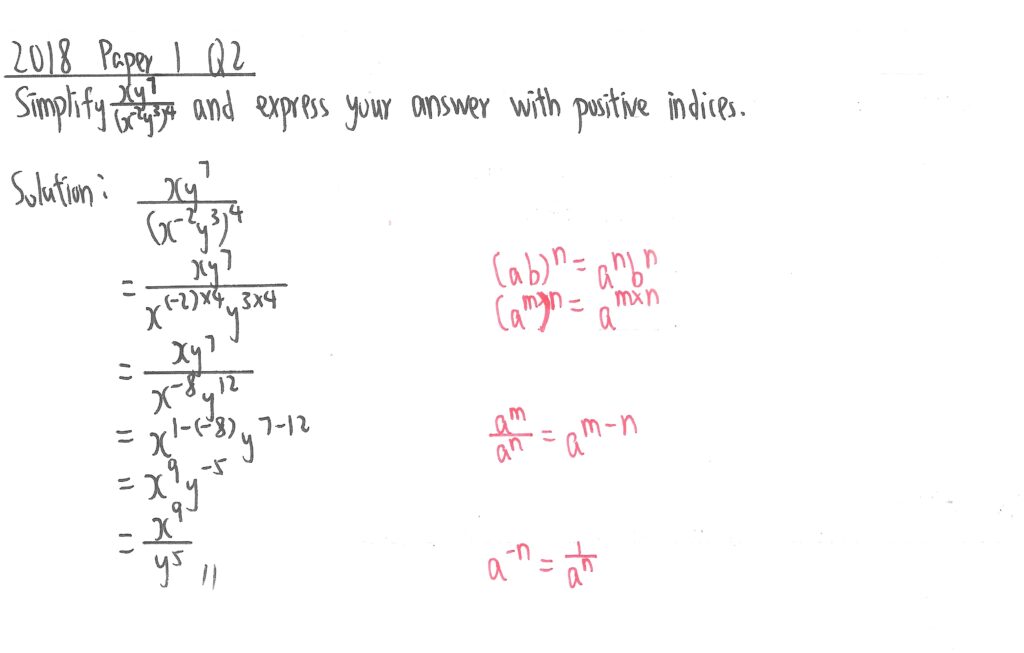 2018 Paper 1 Q2
Simplify \frac{xy^7}{(x^{-2}y^3)^4} and express your answer with positive indices.
Solution: \frac{xy^7}{(x^{-2}y^3)^4}
= \frac{xy^7}{x^{(-2)×4}y^{3×4}}
(ab)^n = a^n b^n
(a^m)^n = a^{m×n}
= \frac{xy^7}{x^{-8}y^{12}}
= x^{1-(-8)}y^{7-12}
\frac{a^m}{a^n} = a^{m-n}
= x^9y^{-5}
= \frac{x^9}{y^5} //
a^{-n} = \frac{1}{a^n}